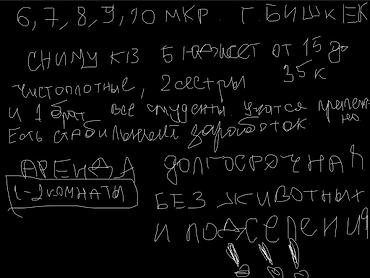 6, 7, 8, 9, 10 МКР. Г. БИШКЕК
СНИМУ КВ БЮДЖЕТ ОТ 15 до
35 к
чистоплотные, 2 сестры
и 1 брат все студенты учатся прилежно
Есть стабильный заработок
АРЕНДА ДОЛГОСРОЧНАЯ
1-2 КОМНАТЫ
БЕЗ ЖИВОТНЫХ
И ПОДСЕЛЕНИЯ
!!!